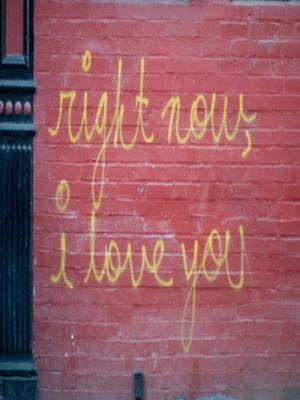 right now,
i love you